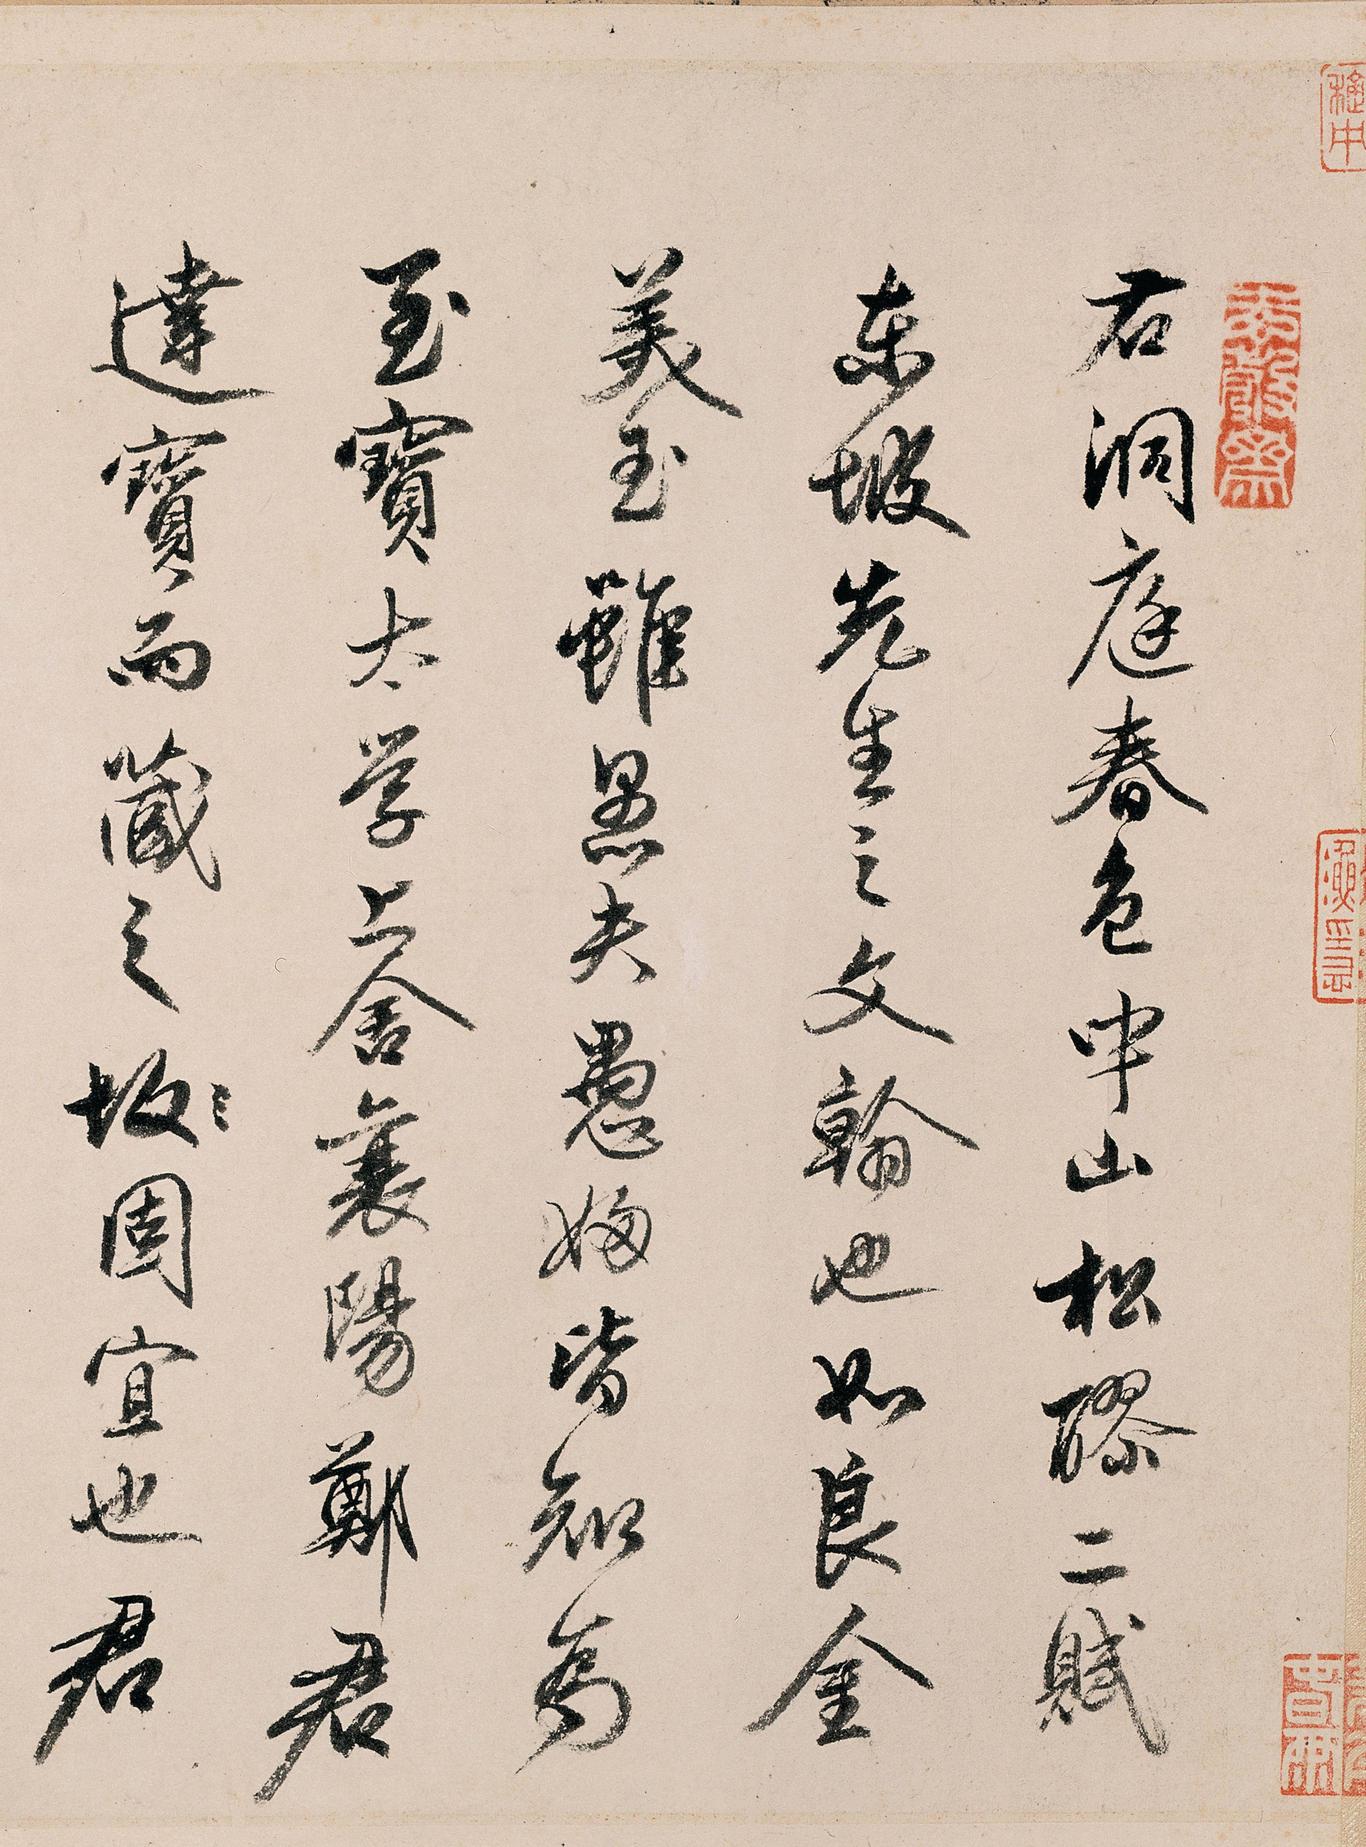 右洞庭春色中山松醪二賦
東坡先生之文翰也如良金
美玉雖愚夫愚婦皆知為
至寶太学上舍襄陽鄭君
達寶而藏之故〻固宜也君